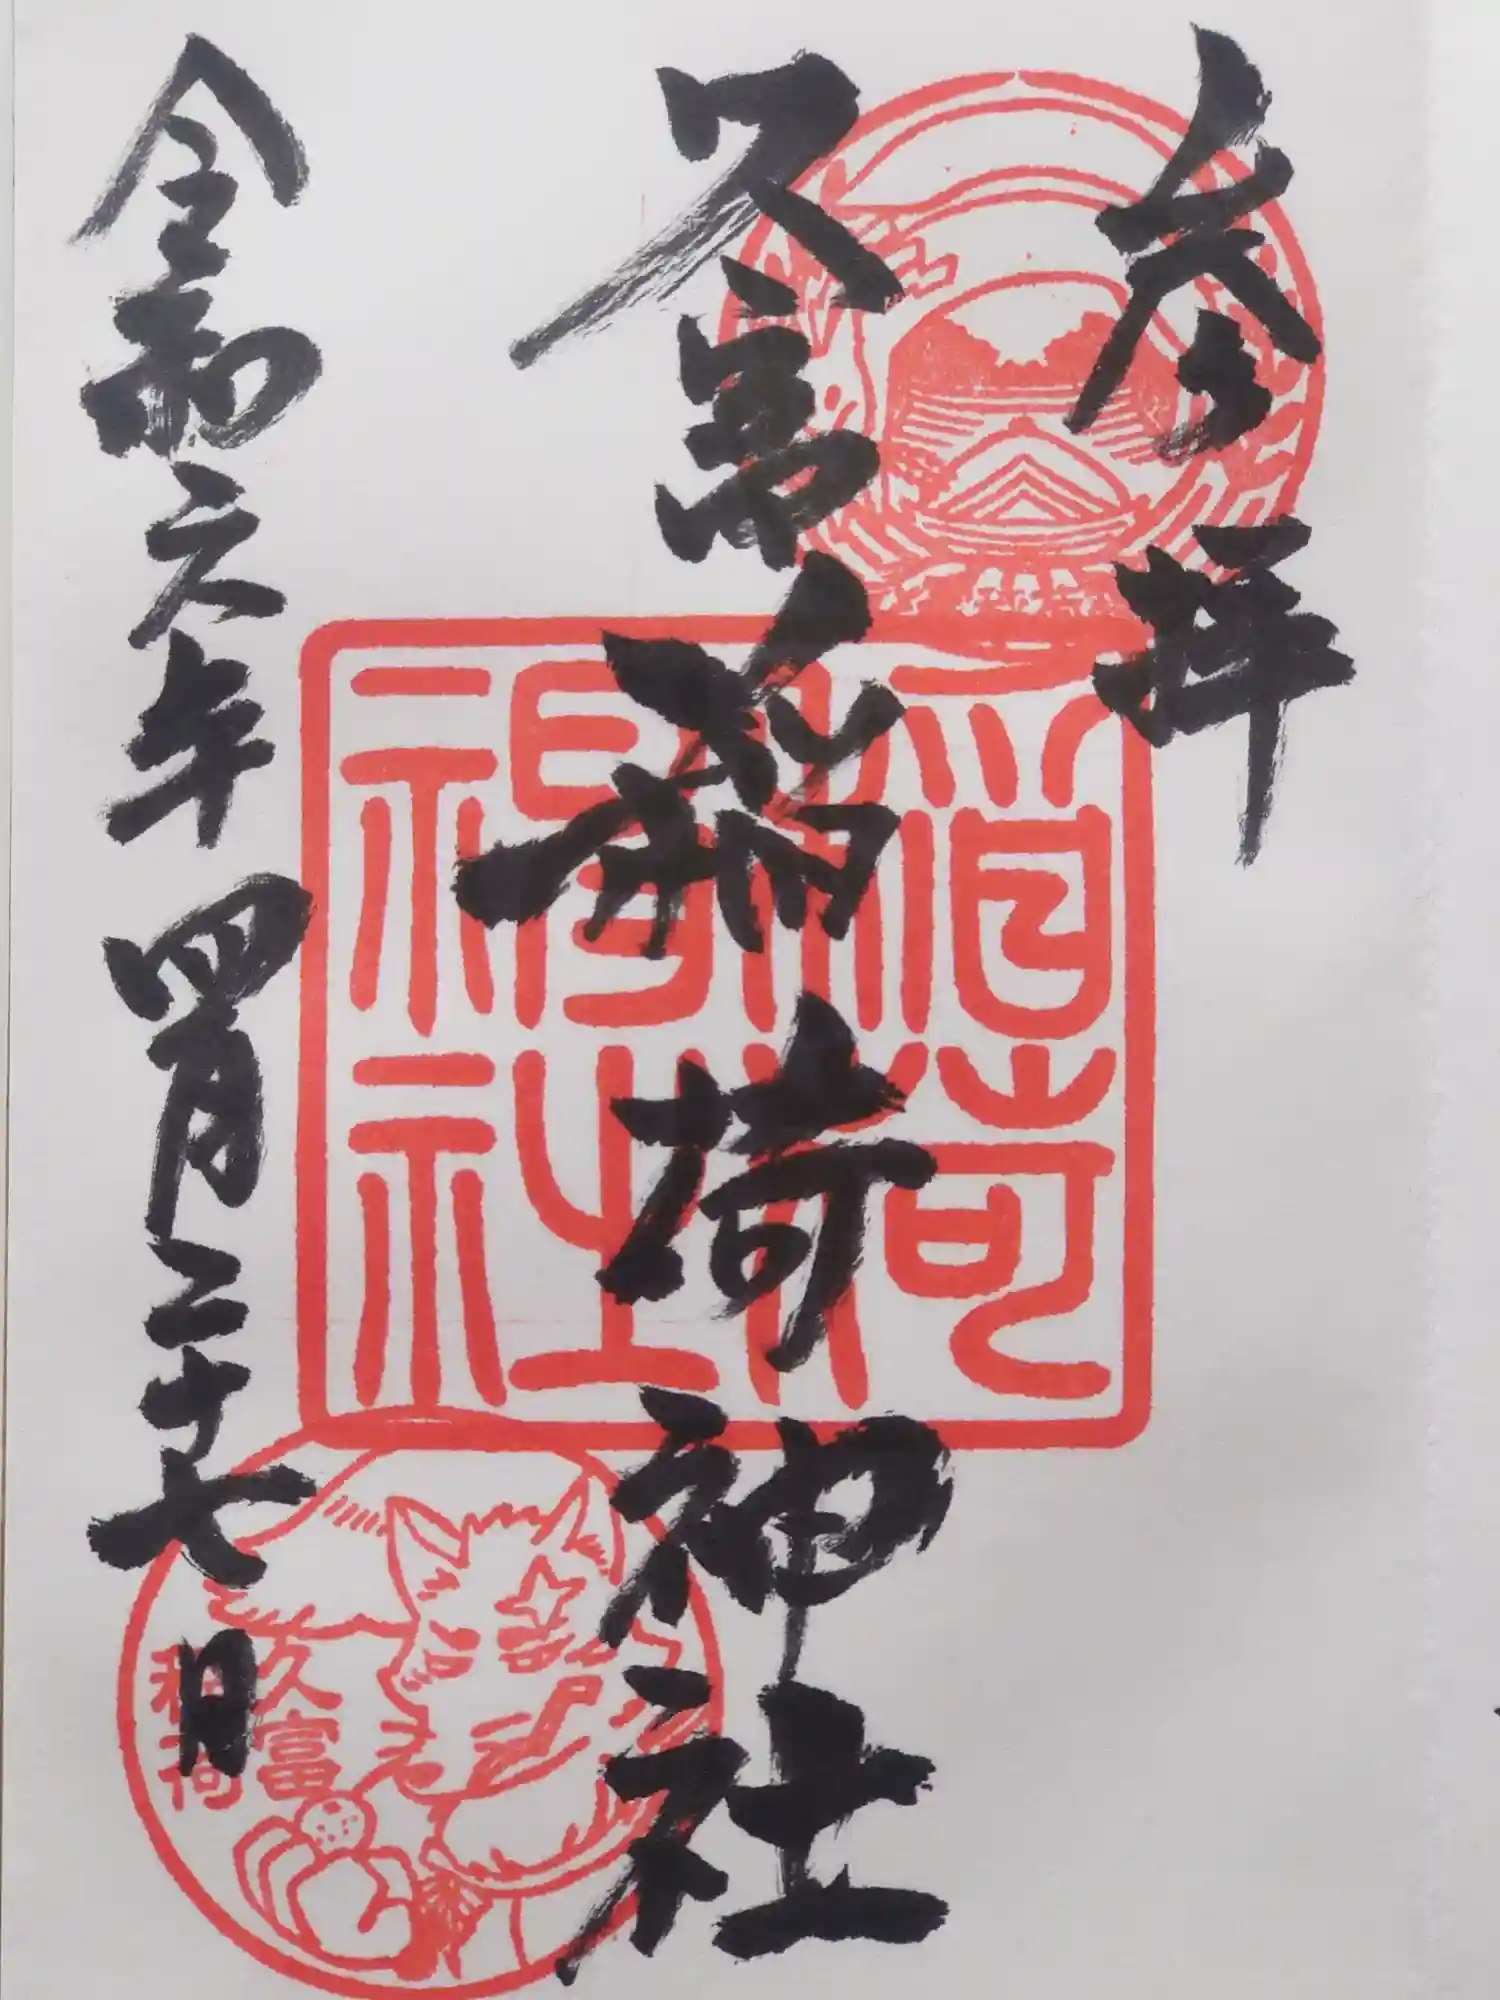 参拝
久富稲荷神社
令和六年四月二十七日
稲荷
神社
久富
稲荷